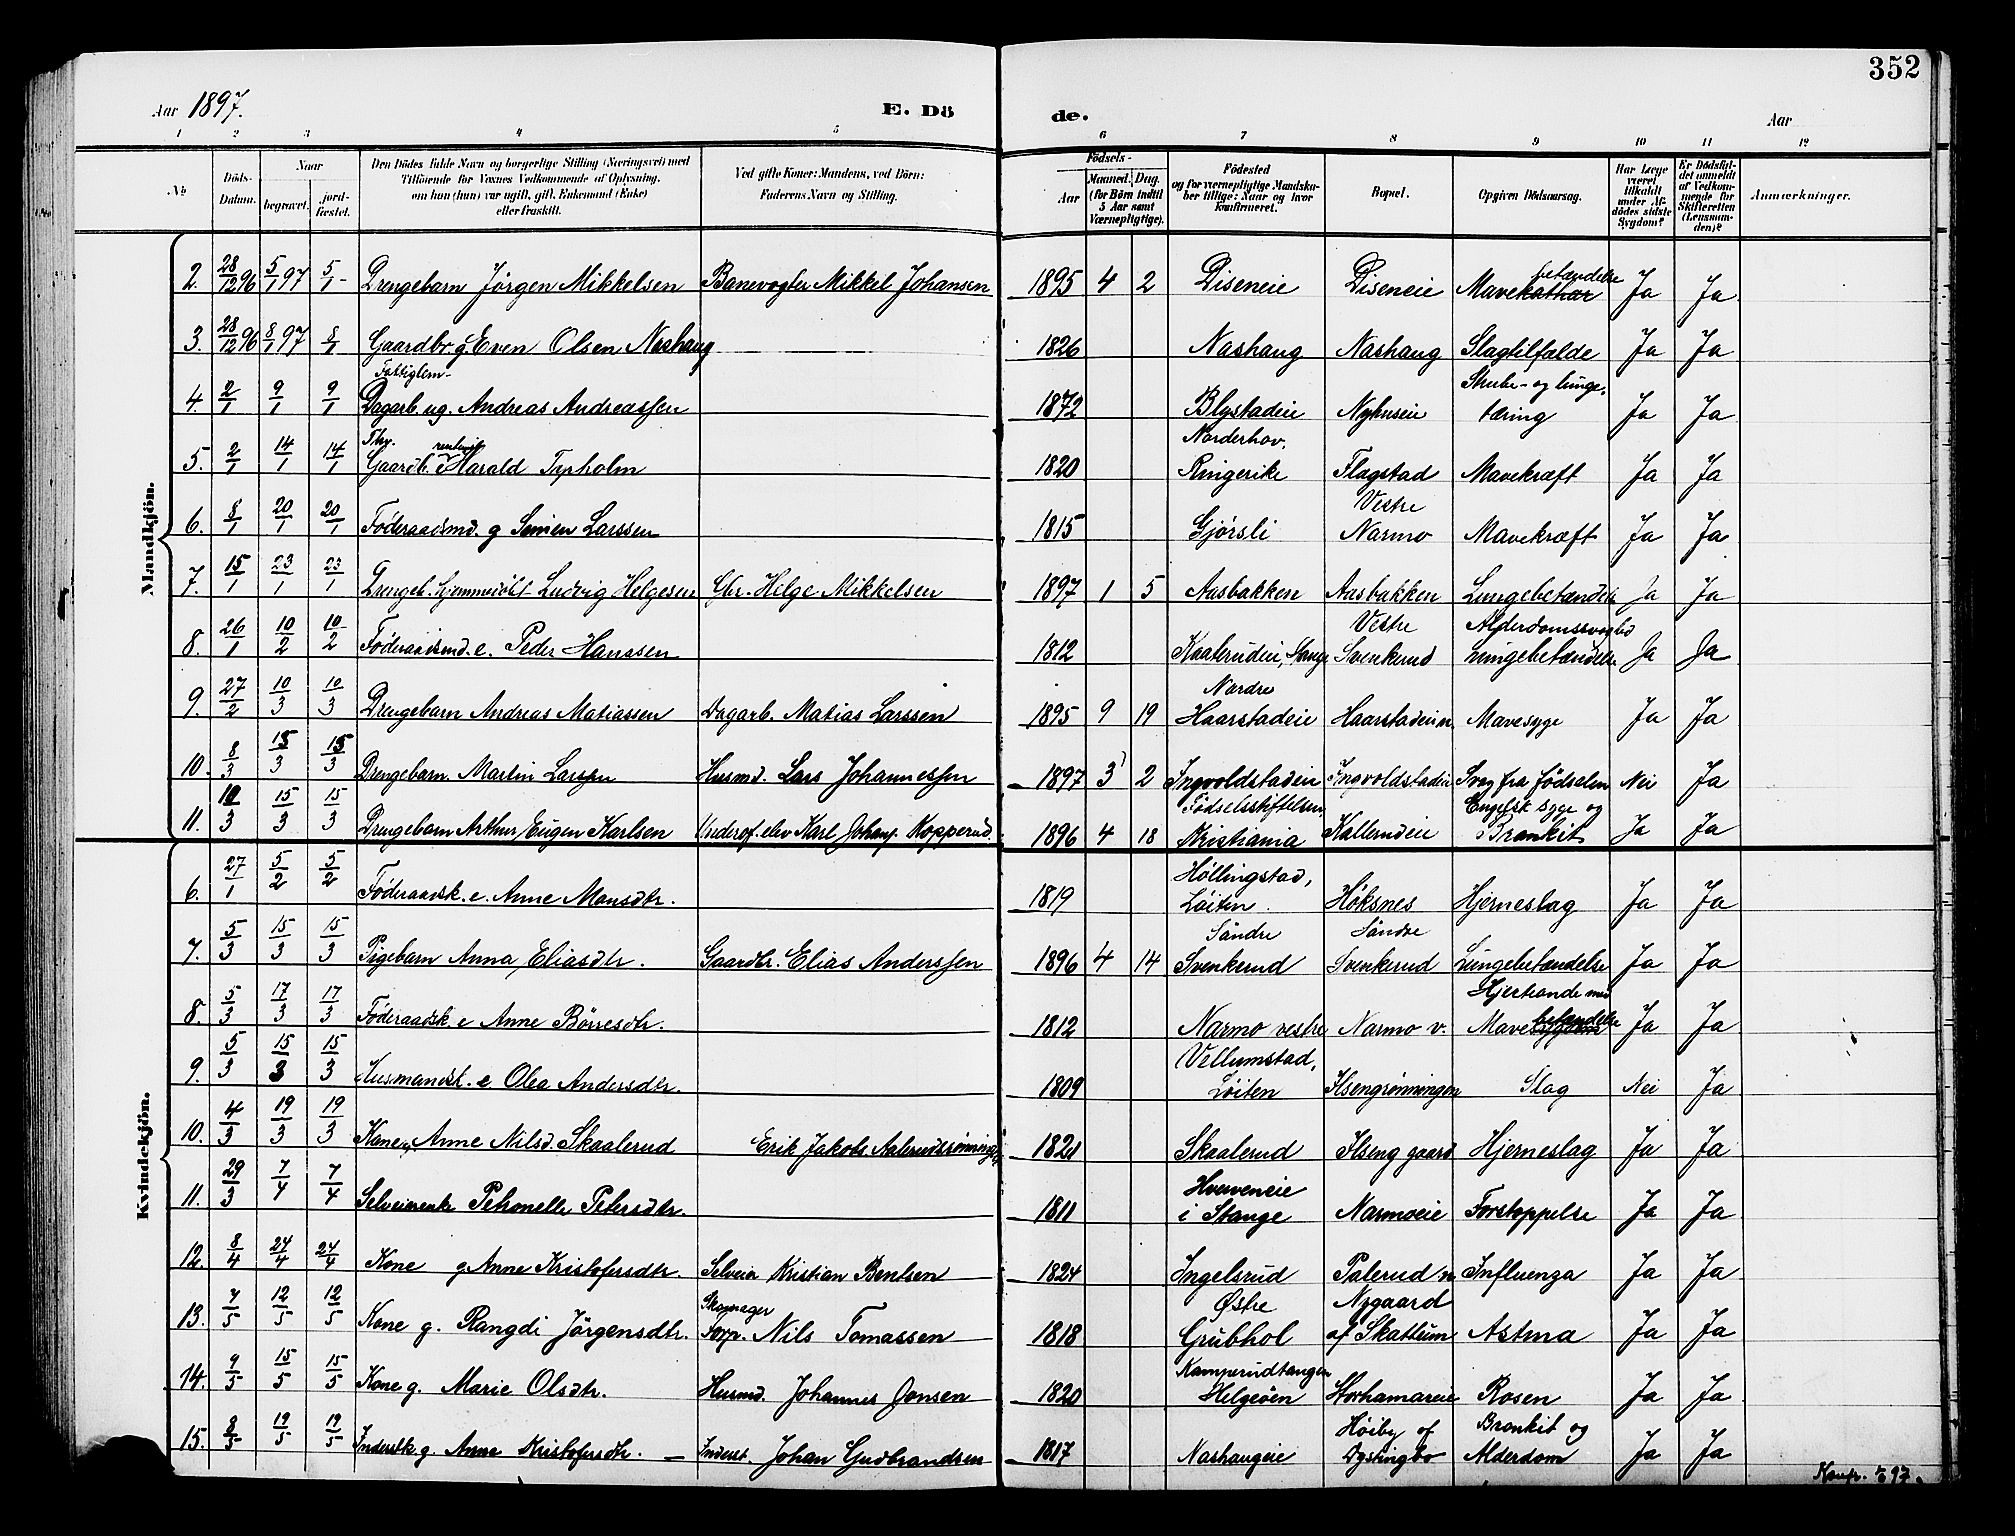 352
Aar 1897. E. Döde. Aar
1 2 3 4 5 6 7 8 9 10 11 12
No
Döds-Datum.
Naar begravet. jordfæstet.
Den Dödes fulde Navn og borgerlige Stilling (Næringsvei) med Tilföiende for Voxnes Vedkommende af Oplysning, om han (hun) var ugift, gift, Enkemand (Enke) eller fraskilt.
Ved gifte Koner: Mandens, ved Börn: Faderens Navn og Stilling.
Födsels- Aar Maaned. Dag. (for Börn indtil 5 Aar samt Værnepligtige).
Födested og for værnepligtige Mandskaber tillige: Naar og hvor konfirmeret.
Bopæl.
Opgiven Dödsaarsag.
Har Læge været tilkaldt under Afdödes sidste Sygdom?
Er Dödsfaldet anmeldt af Vedkommende for Skifteretten (Lensmanden)?
Anmærkninger.
Mandkjön.
2. 28/12 96 5/1 97 5/1 - Drengebarn Jörgen Mikkelsen Banevogter Mikkel Johansen 1895 4 2 Diseneie Diseneie Mavekathar betændelse Ja Ja
3. 28/12 96 8/1 97 8/1 Gaardbr. g Even Olsen Nashaug 1826 Nashaug Nashaug Slagtilfælde Ja Ja
4. 2/1 9/1 9/1 Fattiglem- Dagarb. ug. Andreas Andreassen 1872 Blystadeie Nyhuseie Strube- og lungetæring Ja Ja
5. 2/1 14/1 14/1 Gaardb. Harald Tapholm 1820 Norderhov, Ringerike Flagstad Mavekræft Ja Ja
6. 8/1 20/1 20/1 Föderaadsmd. g Simen Larssen 1815 Gjørsli Vestre Narmo Mavekræft Ja Ja
7. 15/1 23/1 23/1 Drengeb. hjemmedöbt Ludvig Helgesen Gbr. Helge Mikkelsen 1897 1 5 Aasbakken Aasbakken Lungebetændelse Ja Ja
8. 26/1 10/2 10/2 Föderaadsmd. e. Peder Hanssen 1812 Kaalrudeie, Stange Vestre Svenkerud Alderdomssvaghed Lungebetændelse Ja Ja
9. 27/2 10/3 10/3 Drengebarn Andreas Matiassen Dagarb. Matias Larssen 1895 9 19 Nordre Haarstadeie Haarstadeie n. Mavesyge Ja Ja
10. 8/3 15/3 15/3 Drengebarn. Martin Larssen Husmd. Lars Johannessen 1897 3 2 Ingvoldstadeie Ingvoldstadeie Svag fra födselen Nei Ja
11. 10/3 15/3 15/3 Drengebarn Arthur Eugen Karlsen Underof. elev Karl Johan Kopperud 1896 4 18 Fødselsstiftelsen, Kristiania Kallerudeie Engelsk syge og Bronkit Ja Ja
Kvindekjön.
6. 27/1 5/2 5/2 Föderaadsk. e. Anne Monsdtr. 1819 Høllingstad, Løiten. Høksnes Hjerneslag Ja Ja
7. 5/3 15/3 15/3 Pigebarn Anna Eliasdtr. Gaardbr. Elias Anderssen 1896 4 14 Søndre Svenkerud Søndre Svenkerud Lungebetændelse Ja Ja
8. 5/3 17/3 17/3 Föderaadsk e Anne Börresdtr. 1812 Narmo vestre Narmo v. Hjerteonde med Mavebetændelse Ja Ja
9. 5/3 15/3 15/3 Husmandsk. e Olea Andersdtr. 1809 Vellumstad, Løiten Ilsengrønningen Slag Nei Ja
10. 4/3 19/3 19/3 Kone Anne Nilsd. Skaalerud Erik Jakobs. Aalerudsrønningen 1821 Skaalerud Ilseng gaard Hjerneslag Ja Ja
11. 29/3 7/4 7/4 Selveierenke Petronelle Petersdtr. 1811 Hverveneie i Stange Narmoeie Forstoppelse Ja Ja
12. 8/4 24/4 24/4 Kone g. Anne Kristofersdtr. Selveier Kristian Bentsen 1824 Ingelsrud Palerud n. Influenza Ja Ja
13. 7/5 12/5 12/5 Kone g. Rangdi Jörgensdtr. Skomager Torp. Nils Tomassen 1818 Østre Grubhol Nygaard af Skattum Astma Ja Ja
14. 9/5 15/5 15/5 Kone g. Marie Olsdtr. Husmd. Johannes Jonsen 1820 Kamperudtangen Helgeöen Storhamareie Rosen Ja Ja
15. 8/5 19/5 19/5 Inderstk g. Anne Kristofersdtr. — Inderst. Johan Gudbrandsen 1817 Nashaugeie Høiby af Dystingbo Bronkit og Alderdom Ja Ja
Konfr. 97.